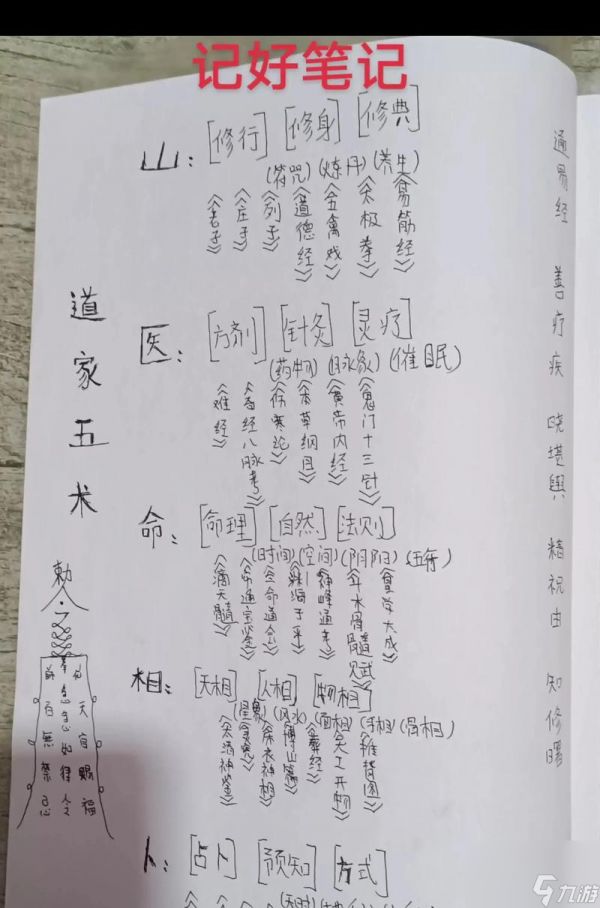 记好笔记
道家五术
山：[修行] [修身] [修典]
(符咒) (炼丹) (养生)
《老子》
《庄子》
《列子》
《道德经》
《五禽戏》
《太极拳》
《易筋经》
医：[方剂] [针灸] [灵疗]
(药物) (脉象) (催眠)
《难经》
《奇经八脉考》
《伤寒论》
《本草纲目》
《黄帝内经》
《鬼门十三针》
命：[命理] [自然] [法则]
(时间) (空间) (阴阳) (五行)
《滴天髓》
《穷通宝鉴》
《三命通会》
《渊海子平》
《斗木骨髓赋》
《星学大成》
相：[天相] [人相] [物相]
(星象) (风水) (面相) (手相) (骨相)
《太清神鉴》
《麻衣神相》
《葬经》
《天工开物》
《推背图》
卜：[占卜] [预知] [方式]
通易经 善疗疾 晓堪舆 精祝由 知修
勅令
天官赐福
百无禁忌
九游